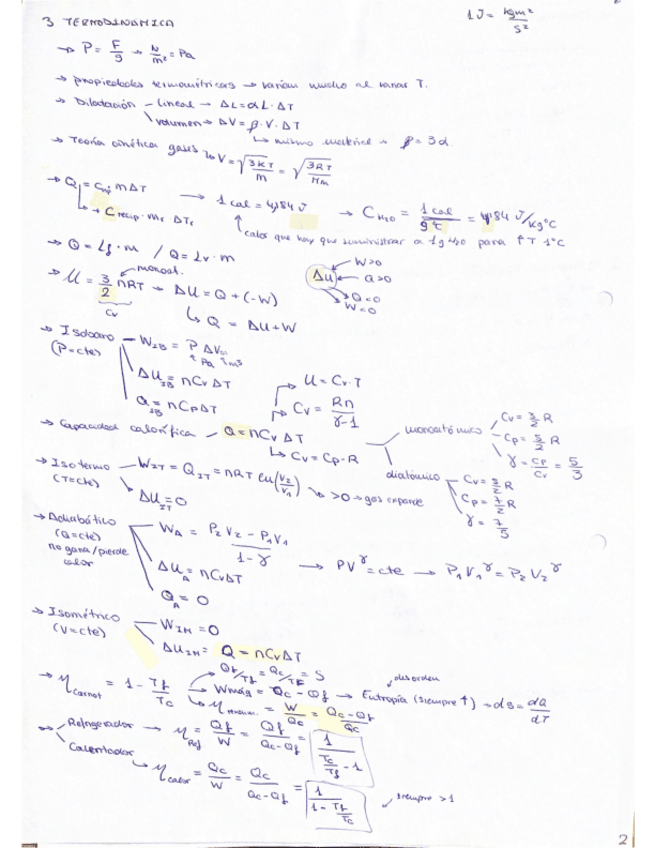 1 J = kgm²/s²
3 TERMODINÁMICA
→ P = F/S → N/m² = Pa
→ propiedades termométricas → varían mucho al variar T.
→ Dilatación - lineal → ΔL = αL·ΔT
volumen → ΔV = β·V·ΔT
↳ mismo material → β = 3α
→ Teoría cinética gases → V = √(3KT/m) = √(3RT/Mm)
→ Q = c m ΔT → 1 cal = 4,184 J → C H2O = 1 cal/g°C = 4,184 J/Kg°C
↳ + C recip · mr ΔTr
calor que hay que suministrar a 1g H2O para ↑T 1°C
→ Q = Lf · m / Q = Lv · m
→ U = 3/2 nRT → ΔU = Q + (-W)
monoat.
Cv
↳ Q = ΔU + W
ΔU
W>0
Q>0
Q<0
W<0
→ Isóbaro (P=cte) - W IB = P ΔV
Pa m³
ΔU IB = nCvΔT
Q IB = nCpΔT
U = Cv·T
Cv = Rn/γ-1
→ Capacidad calorífica - Q = nCvΔT
↳ Cv = Cp - R
monoatómico
Cv = 3/2 R
Cp = 5/2 R
γ = Cp/Cv = 5/3
diatómico
Cp = 7/2 R
γ = 7/5
→ Isotermo (T=cte) - W IT = Q IT = nRT Ln(V2/V1) → >0 → gas expande
ΔU IT = 0
→ Adiabático (Q=cte) no gana/pierde calor
W A = P2V2 - P1V1/1-γ
ΔU A = nCvΔT → PV^γ = cte → P1V1^γ = P2V2^γ
Q A = 0
→ Isométrico (V=cte)
W IM = 0
ΔU IM = Q = nCvΔT
Qf/Tf = Qc/Tc = S
→ η Carnot = 1 - Tf/Tc
→ W máq = Qc - Qf → Entropía (siempre ↑) → dS = dQ/dT
desorden
= W/Qc = Qc-Qf/Qc
→ Refrigerador → η Ref = Qf/W = Qf/Qc-Qf = 1/(Tc/Tf - 1)
Calentador
↳ η calor = Qc/W = Qc/Qc-Qf = 1/(1 - Tf/Tc)
siempre >1
2